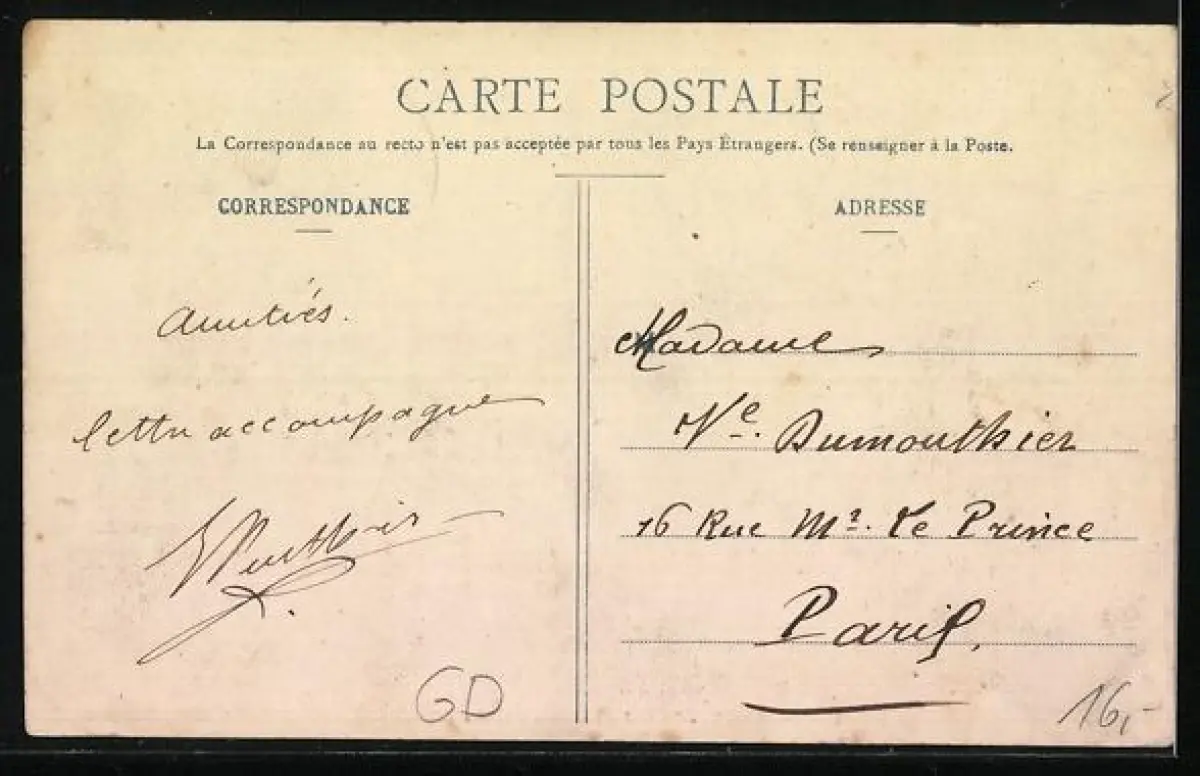 CARTE POSTALE
La Correspondance au recto n'est pas acceptée par tous les Pays Étrangers. (Se renseigner à la Poste.
CORRESPONDANCE
ADRESSE
Amitiés.
lettre accompagne
Madame
Ve. Dumouthier
16 Rue Mr. Le Prince
Paris,
GD
16,-